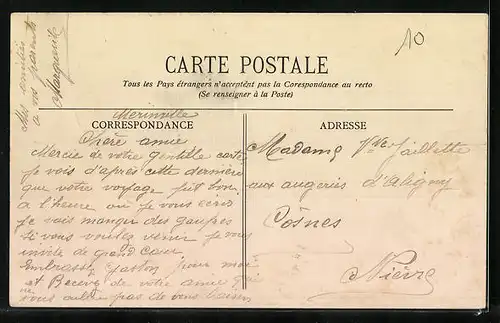 10
CARTE POSTALE
Tous les Pays étrangers n'acceptent pas la Corespondance au recto
(Se renseigner à la Poste)
CORRESPONDANCE
Merinville
Chère amie
Mercie de votre gentille carte
je vois d'après cette dernière
que votre voyage fut bon
a l'heure ou je vous écris
je vais manger des gaufres
si vous voulez venir je vous
invite de grand cœur
Embrassez Gaston pour moi
et Recevez de votre amie qui
ne vous oublie pas de bons baisers
Mes amitiés
a vos parents
Marguerite
ADRESSE
Madame Vve Jaillette
aux augeries d'Aligny
Cosnes
Nièvre